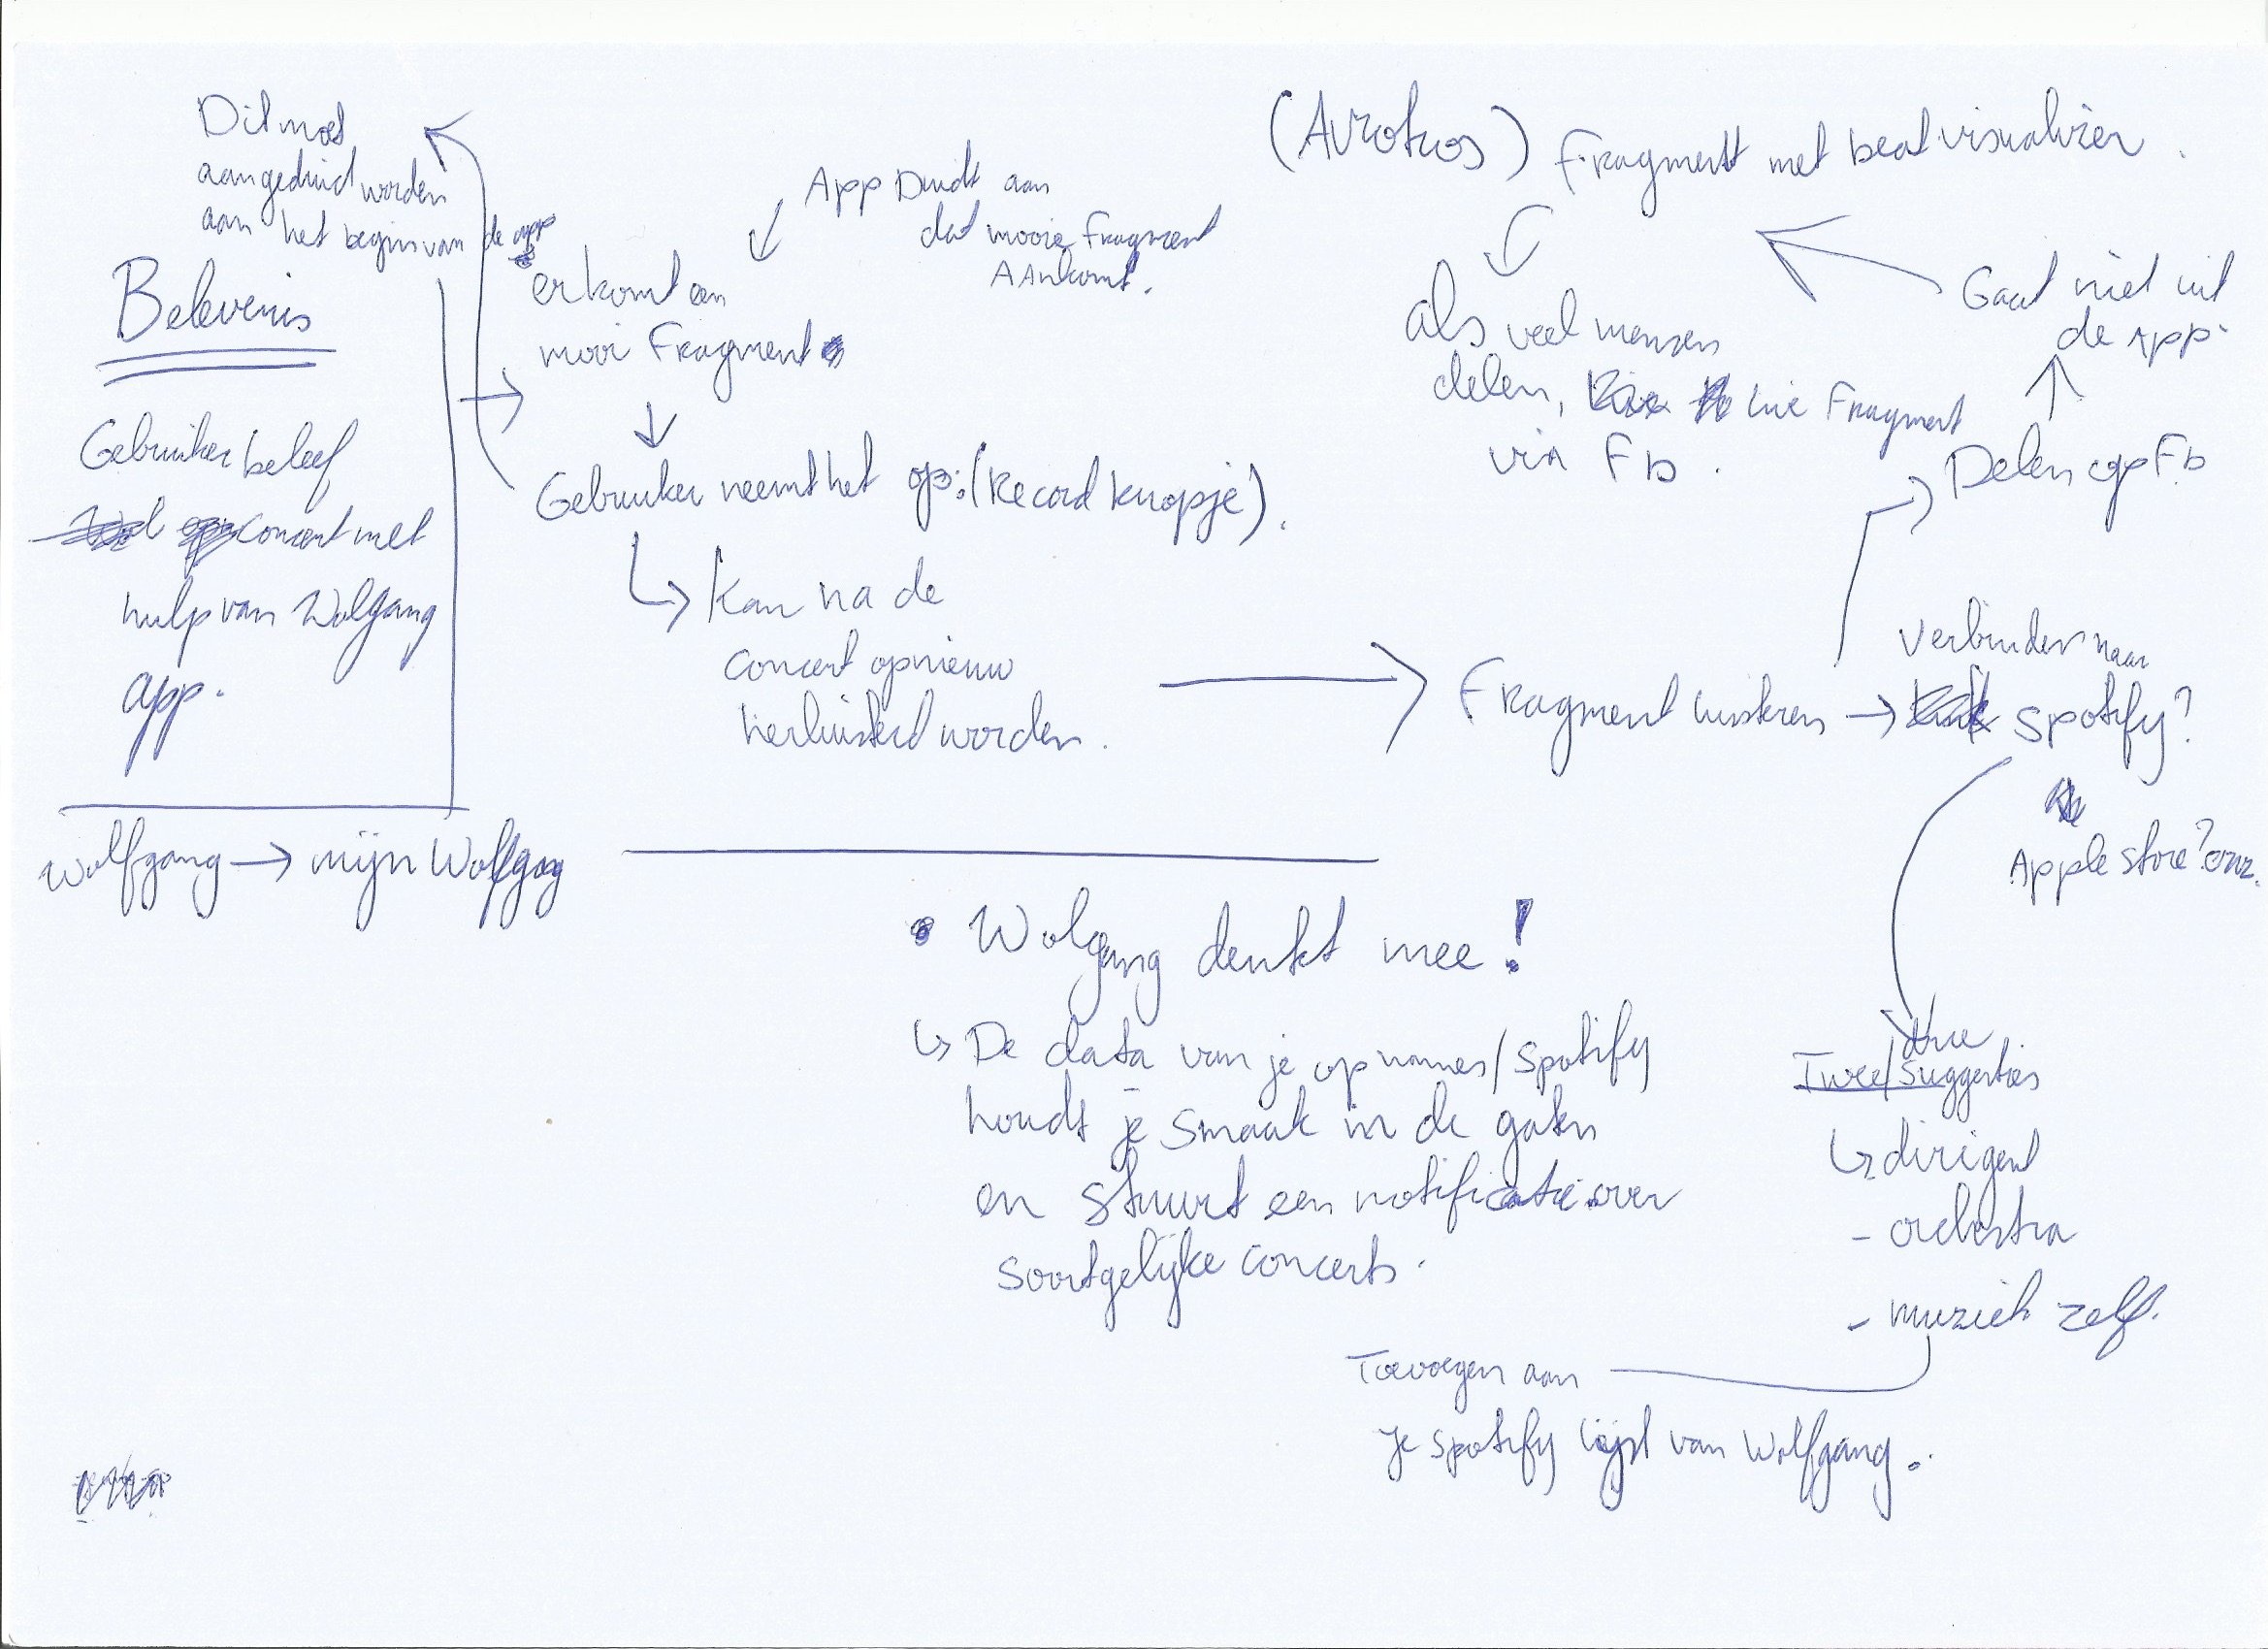 Dit moet
aangeduid worden
aan het begin van de app
Belevenis
Gebruiker beleef
concert met
hulp van Wolfgang
app.
Wolfgang → mijn Wolfgang
App Duidt aan
dat mooie fragment
AAnkomt.
er komt een
mooi Fragment
Gebruiker neemt het op: (Record knopje).
Kan na de
concert opnieuw
herluisterd worden.
(Avrotros) fragment met beat visualizer.
als veel mensen
delen, live Fragment
via FB.
Gaat niet uit
de App.
Delen op FB
Fragment luisteren →
Verbinden naar
Spotify?
Apple store? enz.
• Wolgang denkt mee!
↳ De data van je opnames/Spotify
houdt je smaak in de gaten
en stuurt een notificatie over
soortgelijke concerts.
drie
Twee/Suggesties
↳ dirigent
- orchestra
- muziek zelf.
Toevoegen aan
je spotify lijst van Wolfgang.